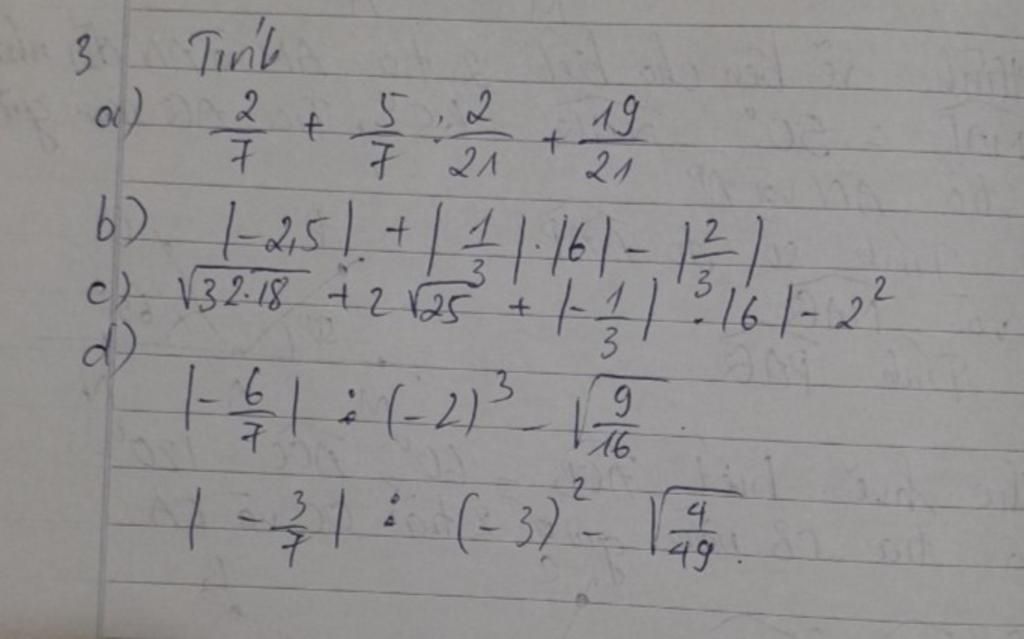 3 Tính
a) 2/7 + 5/7 . 2/21 + 19/21
b) |-2,5| + |1/3| . |6| - |2/3|
c) √(32.18) + 2√25 + |-1/3| . |6| - 2²
d)
|-6/7| : (-2)³ - √(9/16)
|-3/7| : (-3)² - √(4/49)